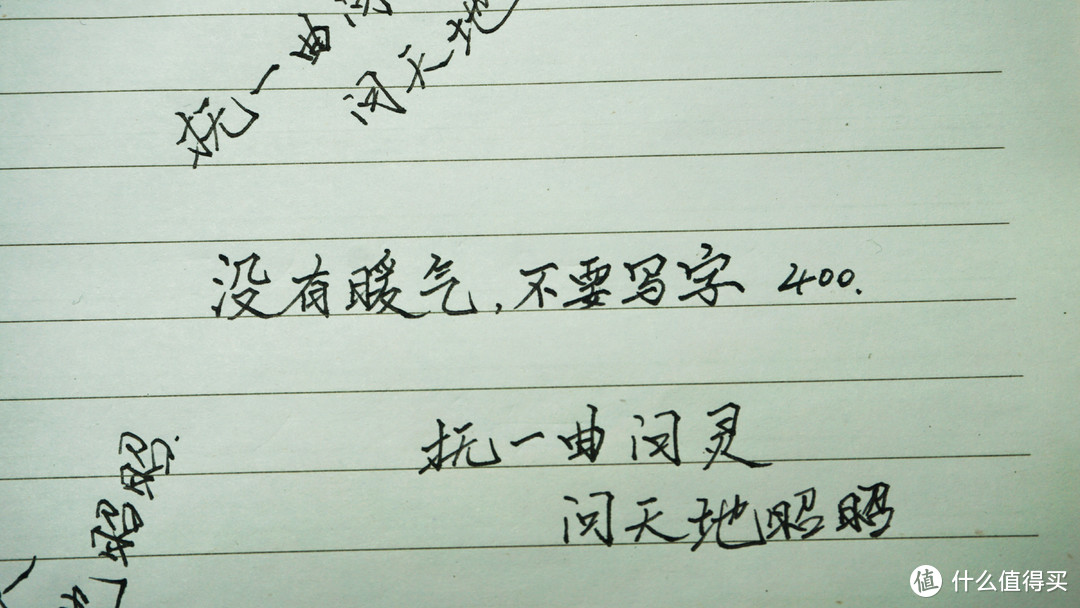 抚一曲问
问天地
没有暖气,不要写字 400.
抚一曲问灵
问天地昭昭
昭昭
值 什么值得买